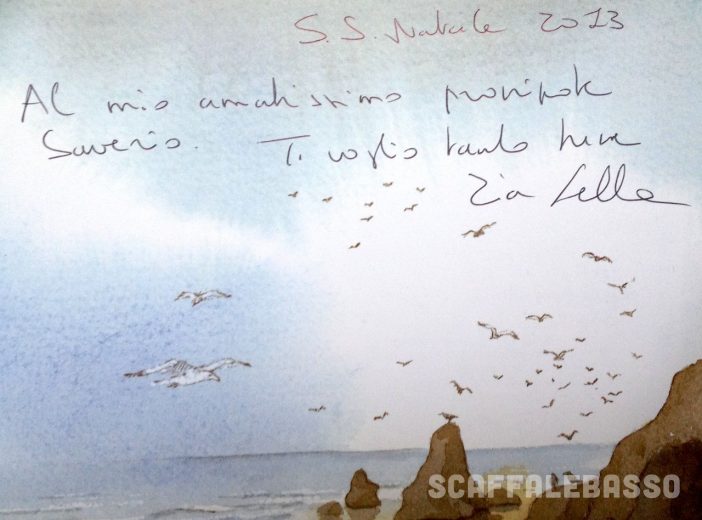 S.S. Natale 2013
Al mio amatissimo pronipote
Saverio. Ti voglio tanto bene
Zia Lella
SCAFFALEBASSO